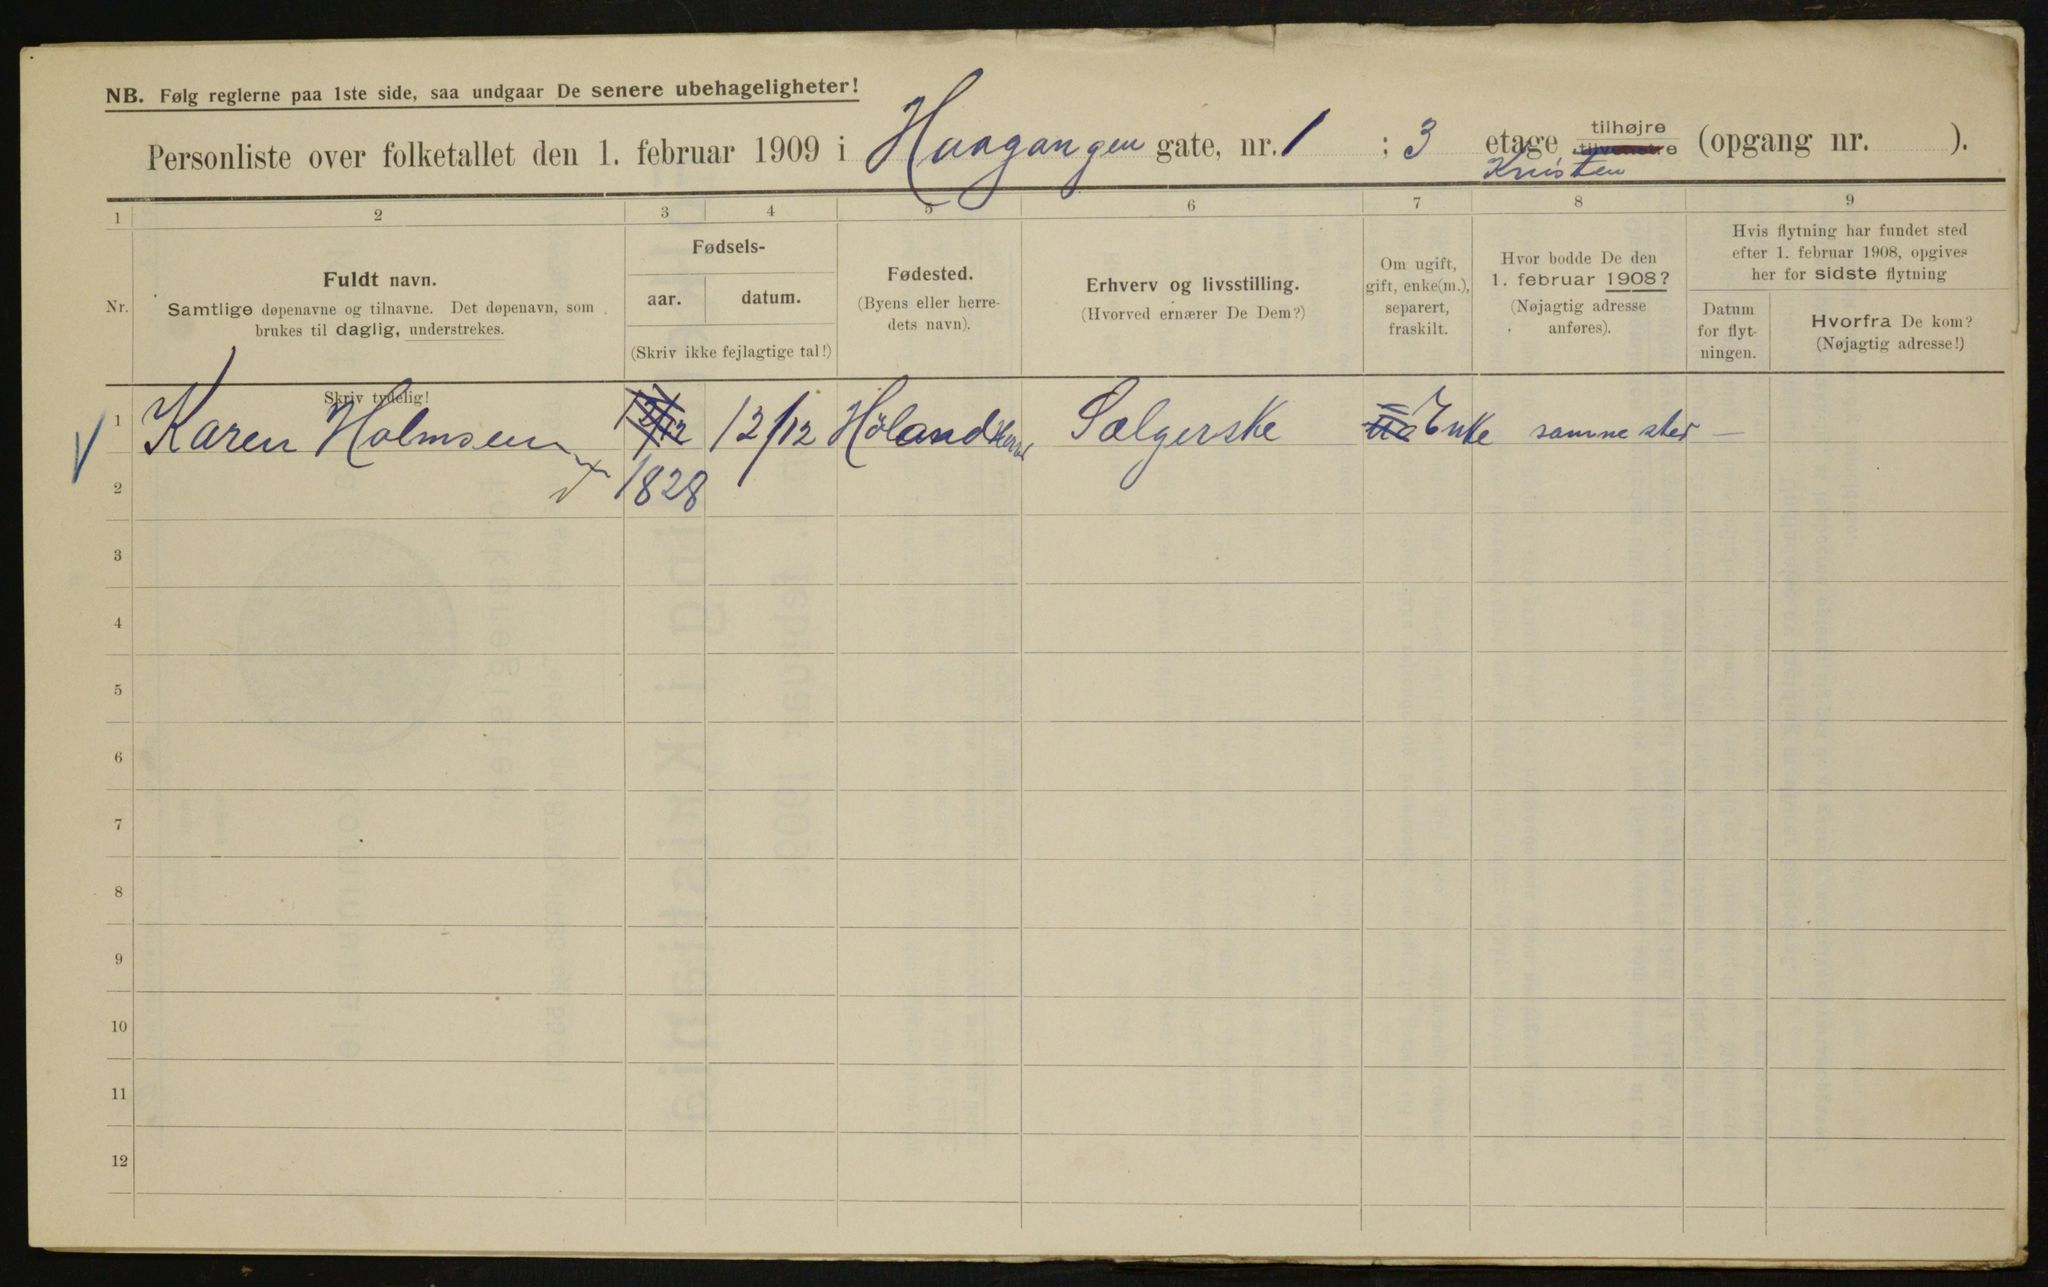 NB. Følg reglerne paa 1ste side, saa undgaar De senere ubehageligheter!
Personliste over folketallet den 1. februar 1909 i Haagangen gate, nr. 1 ; 3 etage tilhøjre tilvenstre (opgang nr. ).
Kvisten
1 2 3 4 5 6 7 8 9
Nr.
Fuldt navn.
Samtlige døpenavne og tilnavne. Det døpenavn, som
brukes til daglig, understrekes.
Skriv tydelig!
Fødsels-
aar. datum.
(Skriv ikke fejlagtige tal!)
Fødested.
(Byens eller herre-
dets navn).
Erhverv og livsstilling.
(Hvorved ernærer De Dem?)
Om ugift,
gift, enke(m.),
separert,
fraskilt.
Hvor bodde De den
1. februar 1908?
(Nøjagtig adresse
anføres).
Hvis flytning har fundet sted
efter 1. februar 1908, opgives
her for sidste flytning
Datum
for flyt-
ningen.
Hvorfra De kom?
(Nøjagtig adresse!)
1 Karen Holmsen 12/12 12/12 Höland Sælgerske Enke samme sted —
2 1828
3
4
5
6
7
8
9
10
11
12